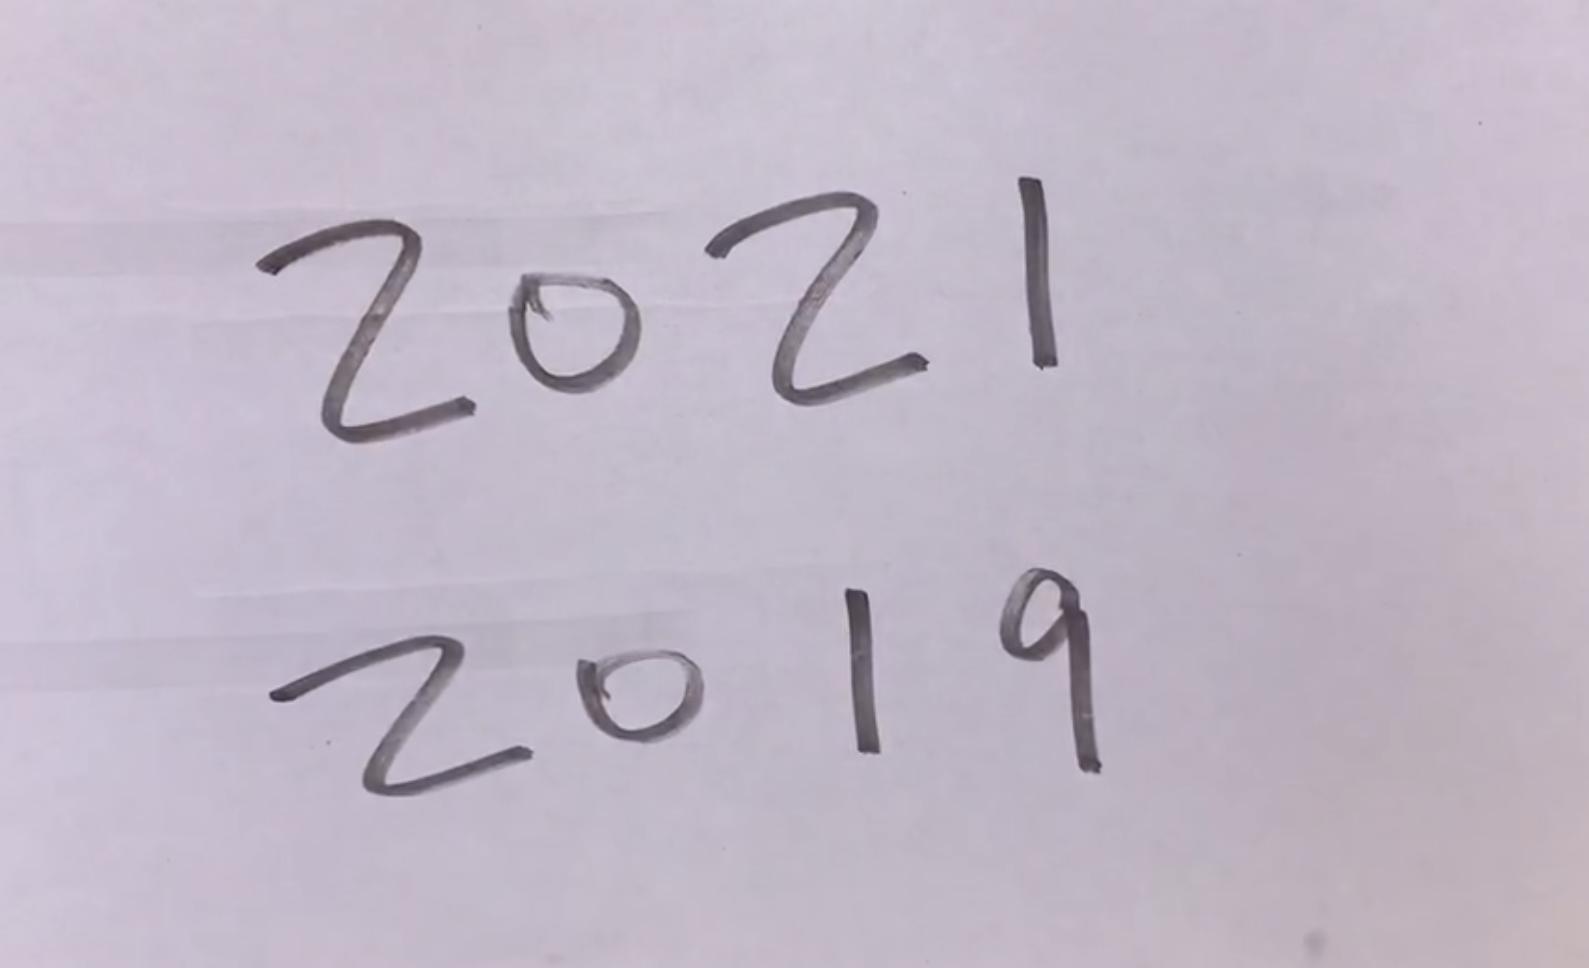 2021
2019